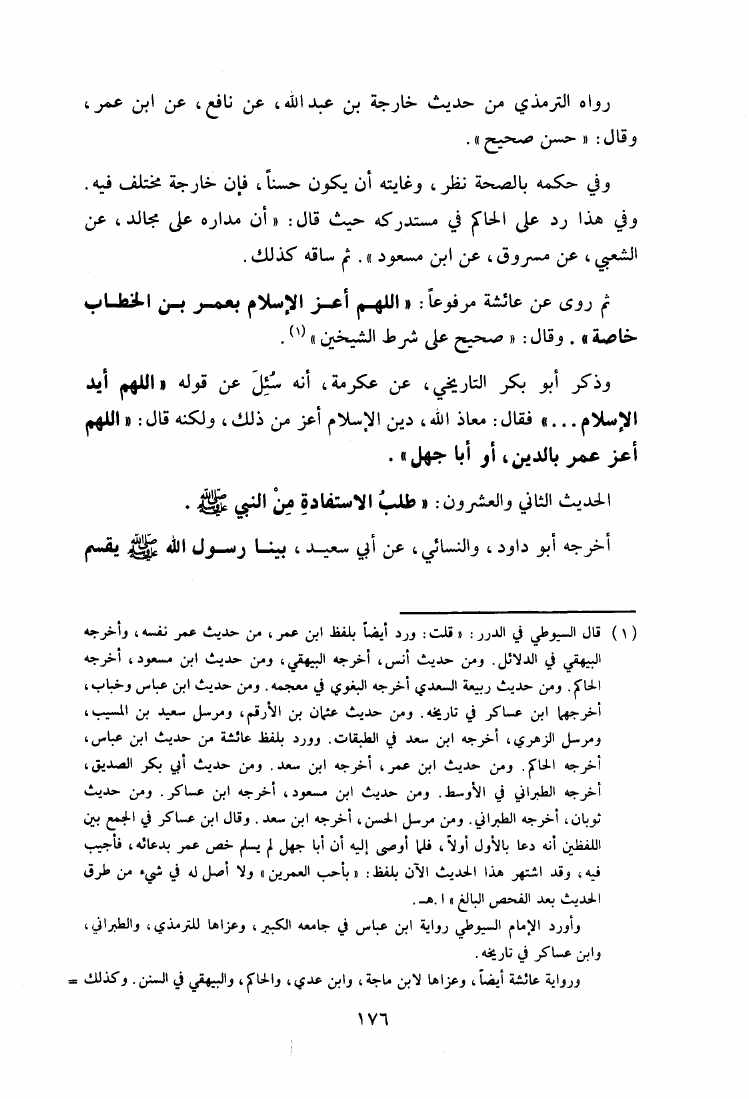 رواه الترمذي من حديث خارجة بن عبد الله، عن نافع، عن ابن عمر،
وقال: « حسن صحيح ».
وفي حكمه بالصحة نظر، وغايته أن يكون حسناً، فإن خارجة مختلف فيه.
وفي هذا رد على الحاكم في مستدركه حيث قال: « أن مداره على مجالد، عن
الشعبي، عن مسروق، عن ابن مسعود ». ثم ساقه كذلك.
ثم روى عن عائشة مرفوعاً: « اللهم أعز الإسلام بعمر بن الخطاب
خاصة ». وقال: « صحيح على شرط الشيخين »(١).
وذكر أبو بكر التاريخي، عن عكرمة، أنه سُئِلَ عن قوله « اللهم أيد
الإسلام... » فقال: معاذ الله، دين الإسلام أعز من ذلك، ولكنه قال: « اللهم
أعز عمر بالدين، أو أبا جهل ».
الحديث الثاني والعشرون: « طلبُ الاستفادةِ مِنْ النبي ﷺ ».
أخرجه أبو داود، والنسائي، عن أبي سعيد، بينا رسول الله ﷺ يقسم
(١) قال السيوطي في الدرر: « قلت: ورد أيضاً بلفظ ابن عمر، من حديث عمر نفسه، وأخرجه
البيهقي في الدلائل. ومن حديث أنس، أخرجه البيهقي، ومن حديث ابن مسعود، أخرجه
الحاكم. ومن حديث ربيعة السعدي أخرجه البغوي في معجمه. ومن حديث ابن عباس وخباب،
أخرجها ابن عساكر في تاريخه. ومن حديث عثمان بن الأرقم، ومرسل سعيد بن المسيب،
ومرسل الزهري، أخرجه ابن سعد في الطبقات. وورد بلفظ عائشة من حديث ابن عباس،
أخرجه الحاكم. ومن حديث ابن عمر، أخرجه ابن سعد. ومن حديث أبي بكر الصديق،
أخرجه الطبراني في الأوسط. ومن حديث ابن مسعود، أخرجه ابن عساكر. ومن حديث
ثوبان، أخرجه الطبراني. ومن مرسل الحسن، أخرجه ابن سعد. وقال ابن عساكر في الجمع بين
اللفظين أنه دعا بالأول أولاً، فلما أوصى إليه أن أبا جهل لم يسلم خص عمر بدعائه، فأجيب
فيه، وقد اشتهر هذا الحديث الآن بلفظ: « بأحب العمرين » ولا أصل له في شيء من طرق
الحديث بعد الفحص البالغ » ا.هـ.
وأورد الإمام السيوطي رواية ابن عباس في جامعه الكبير، وعزاها للترمذي، والطبراني،
وابن عساكر في تاريخه.
ورواية عائشة أيضاً، وعزاها لابن ماجة، وابن عدي، والحاكم، والبيهقي في السنن. وكذلك =
١٧٦